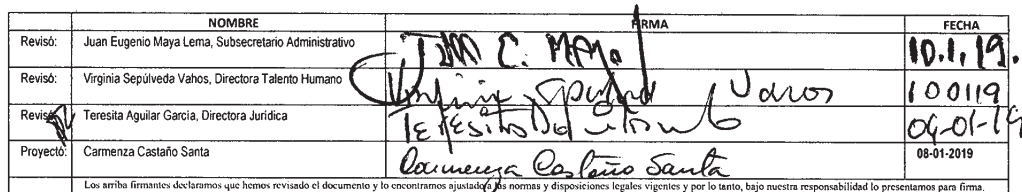 NOMBRE FIRMA FECHA
Revisó: Juan Eugenio Maya Lema, Subsecretario Administrativo 10.1.19.
Revisó: Virginia Sepúlveda Vahos, Directora Talento Humano Virginia Sepúlveda Vahos 100119
Revisó: Teresita Aguilar García, Directora Jurídica Teresita 04-01-19
Proyectó: Carmenza Castaño Santa Carmenza Castaño Santa 08-01-2019
Los arriba firmantes declaramos que hemos revisado el documento y lo encontramos ajustado a las normas y disposiciones legales vigentes y por lo tanto, bajo nuestra responsabilidad lo presentamos para firma.